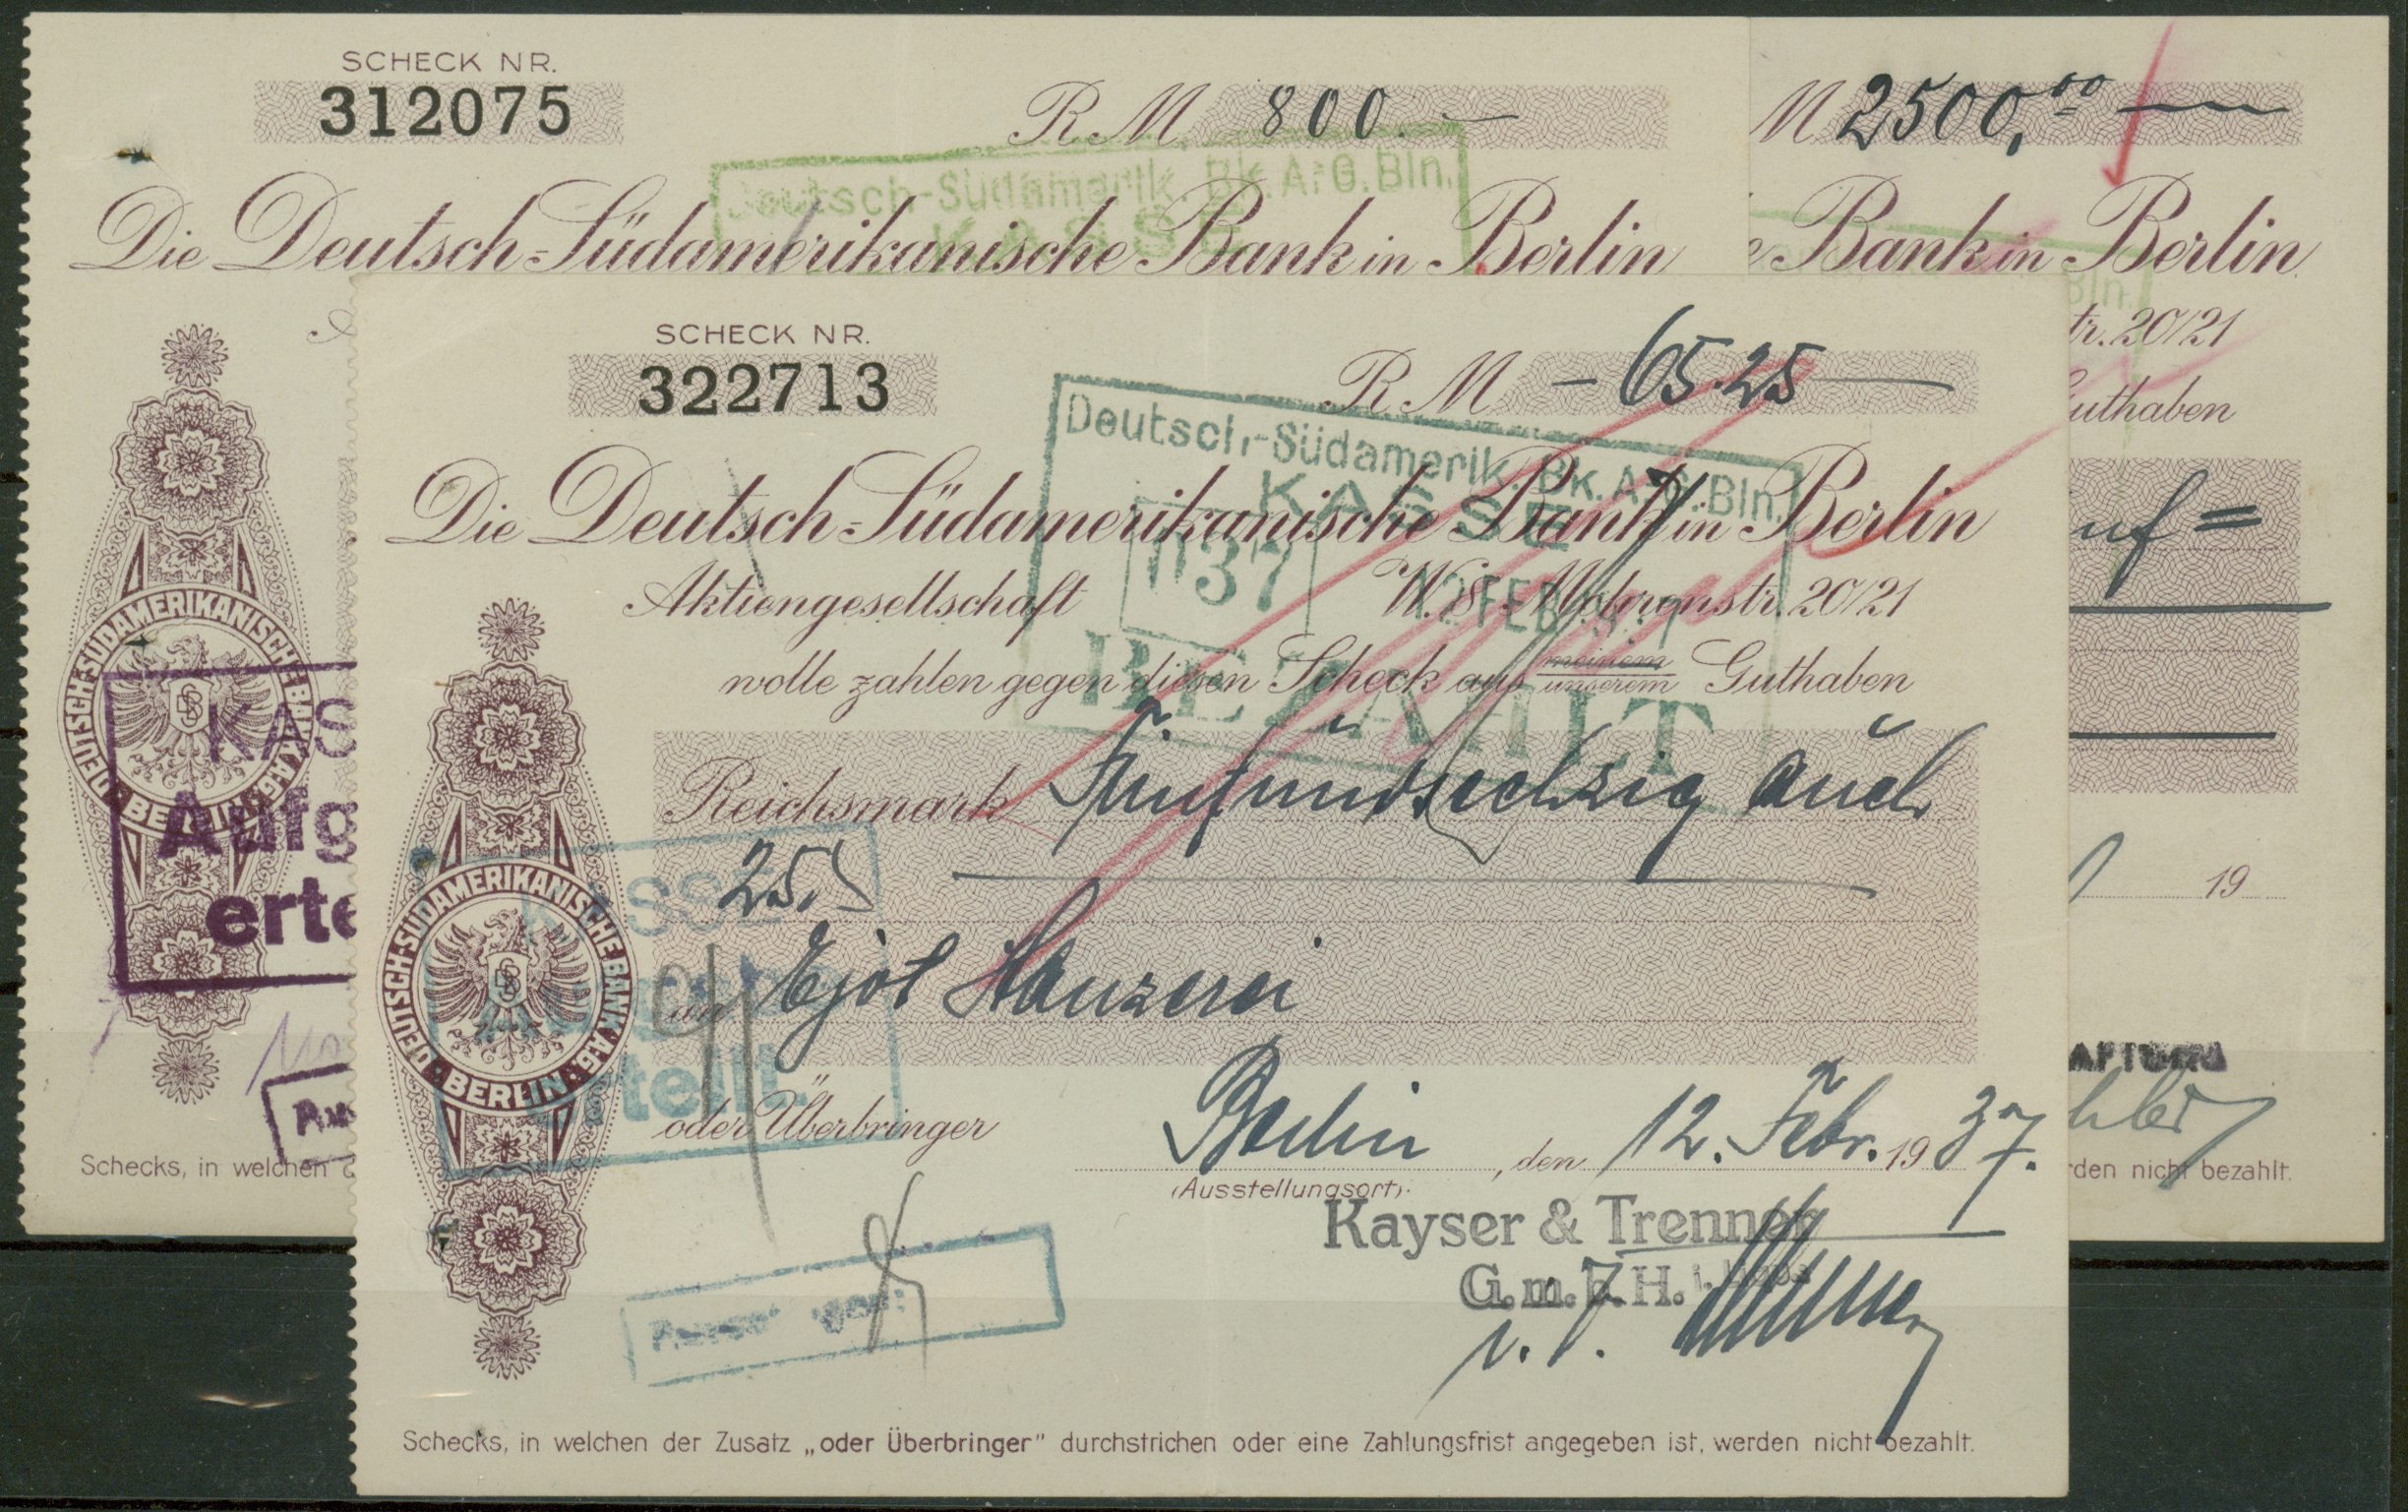 SCHECK NR.
312075
RM 800.—
Deutsch-Südamerik. Bk. A.-G. Bln.
KASSE
Die Deutsch-Südamerikanische Bank in Berlin
DEUTSCH-SÜDAMERIKANISCHE BANK A.G.
BERLIN
KAS
Aufg
erte
Schecks, in welchen
M 2500,00 —
Bank in Berlin
Bln.
tr. 20/21
uthaben
uf =
19
den nicht bezahlt.
SCHECK NR.
322713
RM – 65.25 —
Deutsch-Südamerik. Bk. A.-G. Bln.
KASSE
Die Deutsch-Südamerikanische Bank in Berlin
37
12 FEB
Aktiengesellschaft W. 8. Mohrenstr. 20/21
BEZAHLT
wolle zahlen gegen diesen Scheck aus meinem unserem Guthaben
Reichsmark Fünfundsechzig auch
25.
KASSE
an Ejot Hauzerei
DEUTSCH-SÜDAMERIKANISCHE BANK A.G.
BERLIN
erteilt.
oder Überbringer
Berlin, den 12. Febr. 1937.
(Ausstellungsort).
Kayser & Trenner
G.m.b.H.
Schecks, in welchen der Zusatz „oder Überbringer" durchstrichen oder eine Zahlungsfrist angegeben ist, werden nicht bezahlt.